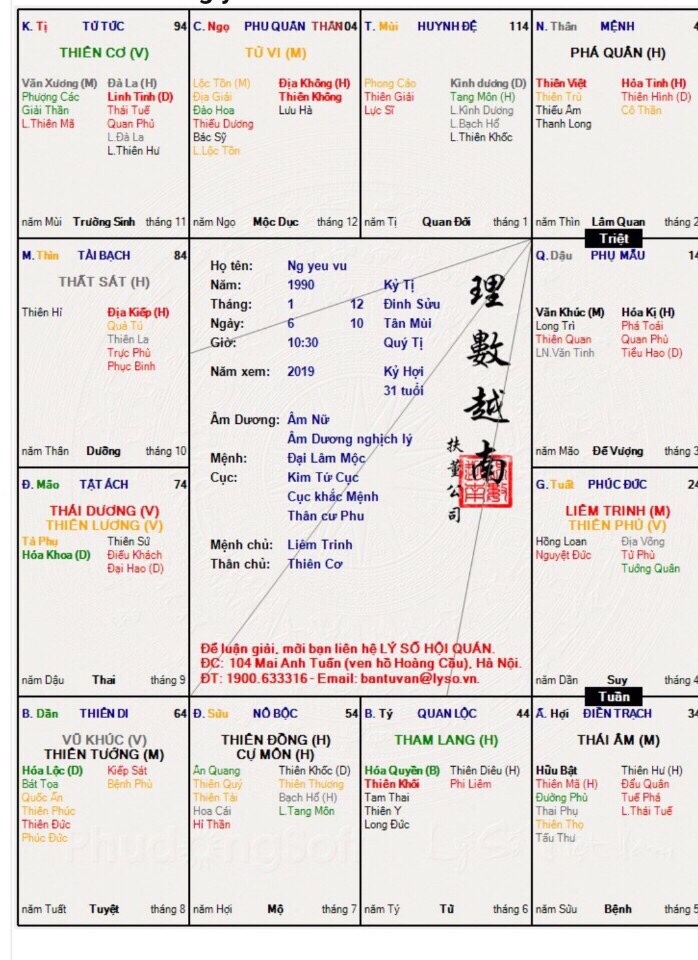 K. Tị TỬ TỨC 94
THIÊN CƠ (V)
Văn Xương (M) Đà La (H)
Phượng Các Linh Tinh (D)
Giải Thần Thái Tuế
L.Thiên Mã Quan Phủ
L.Đà La
L.Thiên Hư
năm Mùi Trường Sinh tháng 11
C. Ngọ PHU QUÂN THÂN 104
TỬ VI (M)
Lộc Tồn (M) Địa Không (H)
Địa Giải Thiên Không
Đào Hoa Lưu Hà
Thiếu Dương
Bác Sỹ
L.Lộc Tồn
năm Ngọ Mộc Dục tháng 12
T. Mùi HUYNH ĐỆ 114
Phong Cáo Kình dương (D)
Thiên Giải Tang Môn (H)
Lực Sĩ L.Kình Dương
L.Bạch Hổ
L.Thiên Khốc
năm Tị Quan Đới tháng 1
N. Thân MỆNH 4
PHÁ QUÂN (H)
Thiên Việt Hỏa Tinh (H)
Thiên Trù Thiên Hình (D)
Thiếu Âm Cô Thần
Thanh Long
năm Thìn Lâm Quan tháng 2
Triệt
M. Thìn TÀI BẠCH 84
THẤT SÁT (H)
Thiên Hỉ Địa Kiếp (H)
Quả Tú
Thiên La
Trực Phù
Phục Binh
năm Thân Dưỡng tháng 10
Họ tên: Ng yeu vu
Năm: 1990 Kỷ Tị
Tháng: 1 12 Đinh Sửu
Ngày: 6 10 Tân Mùi
Giờ: 10:30 Quý Tị
Năm xem: 2019 Kỷ Hợi
31 tuổi
Âm Dương: Âm Nữ
Âm Dương nghịch lý
Mệnh: Đại Lâm Mộc
Cục: Kim Tứ Cục
Cục khắc Mệnh
Thân cư Phu
Mệnh chủ: Liêm Trinh
Thân chủ: Thiên Cơ
理數越南
扶董公司
Để luận giải, mời bạn liên hệ LÝ SỐ HỘI QUÁN.
ĐC: 104 Mai Anh Tuấn (ven hồ Hoàng Cầu), Hà Nội.
ĐT: 1900.633316 - Email: bantuvan@lyso.vn.
Q. Dậu PHỤ MẪU 14
Văn Khúc (M) Hóa Kị (H)
Long Trì Phá Toái
Thiên Quan Quan Phù
LN.Văn Tinh Tiểu Hao (D)
năm Mão Đế Vượng tháng 3
Đ. Mão TẬT ÁCH 74
THÁI DƯƠNG (V)
THIÊN LƯƠNG (V)
Tả Phụ Thiên Sứ
Hóa Khoa (D) Điếu Khách
Đại Hao (D)
năm Dậu Thai tháng 9
G. Tuất PHÚC ĐỨC 24
LIÊM TRINH (M)
THIÊN PHỦ (V)
Hồng Loan Địa Võng
Nguyệt Đức Tử Phù
Tướng Quân
năm Dần Suy tháng 4
Tuần
B. Dần THIÊN DI 64
VŨ KHÚC (V)
THIÊN TƯỚNG (M)
Hóa Lộc (D) Kiếp Sát
Bát Tọa Bệnh Phù
Quốc Ấn
Thiên Phúc
Thiên Đức
Phúc Đức
năm Tuất Tuyệt tháng 8
Đ. Sửu NÔ BỘC 54
THIÊN ĐỒNG (H)
CỰ MÔN (H)
Ân Quang Thiên Khốc (D)
Thiên Quý Thiên Thương
Thiên Tài Bạch Hổ (H)
Hoa Cái L.Tang Môn
Hỉ Thần
năm Hợi Mộ tháng 7
B. Tý QUAN LỘC 44
THAM LANG (H)
Hóa Quyền (B) Thiên Diêu (H)
Thiên Khôi Phi Liêm
Tam Thai
Thiên Y
Long Đức
năm Tý Tử tháng 6
Ấ. Hợi ĐIỀN TRẠCH 34
THÁI ÂM (M)
Hữu Bật Thiên Hư (H)
Thiên Mã (H) Đẩu Quân
Đường Phù Tuế Phá
Thai Phụ L.Thái Tuế
Thiên Thọ
Tấu Thư
năm Sửu Bệnh tháng 5